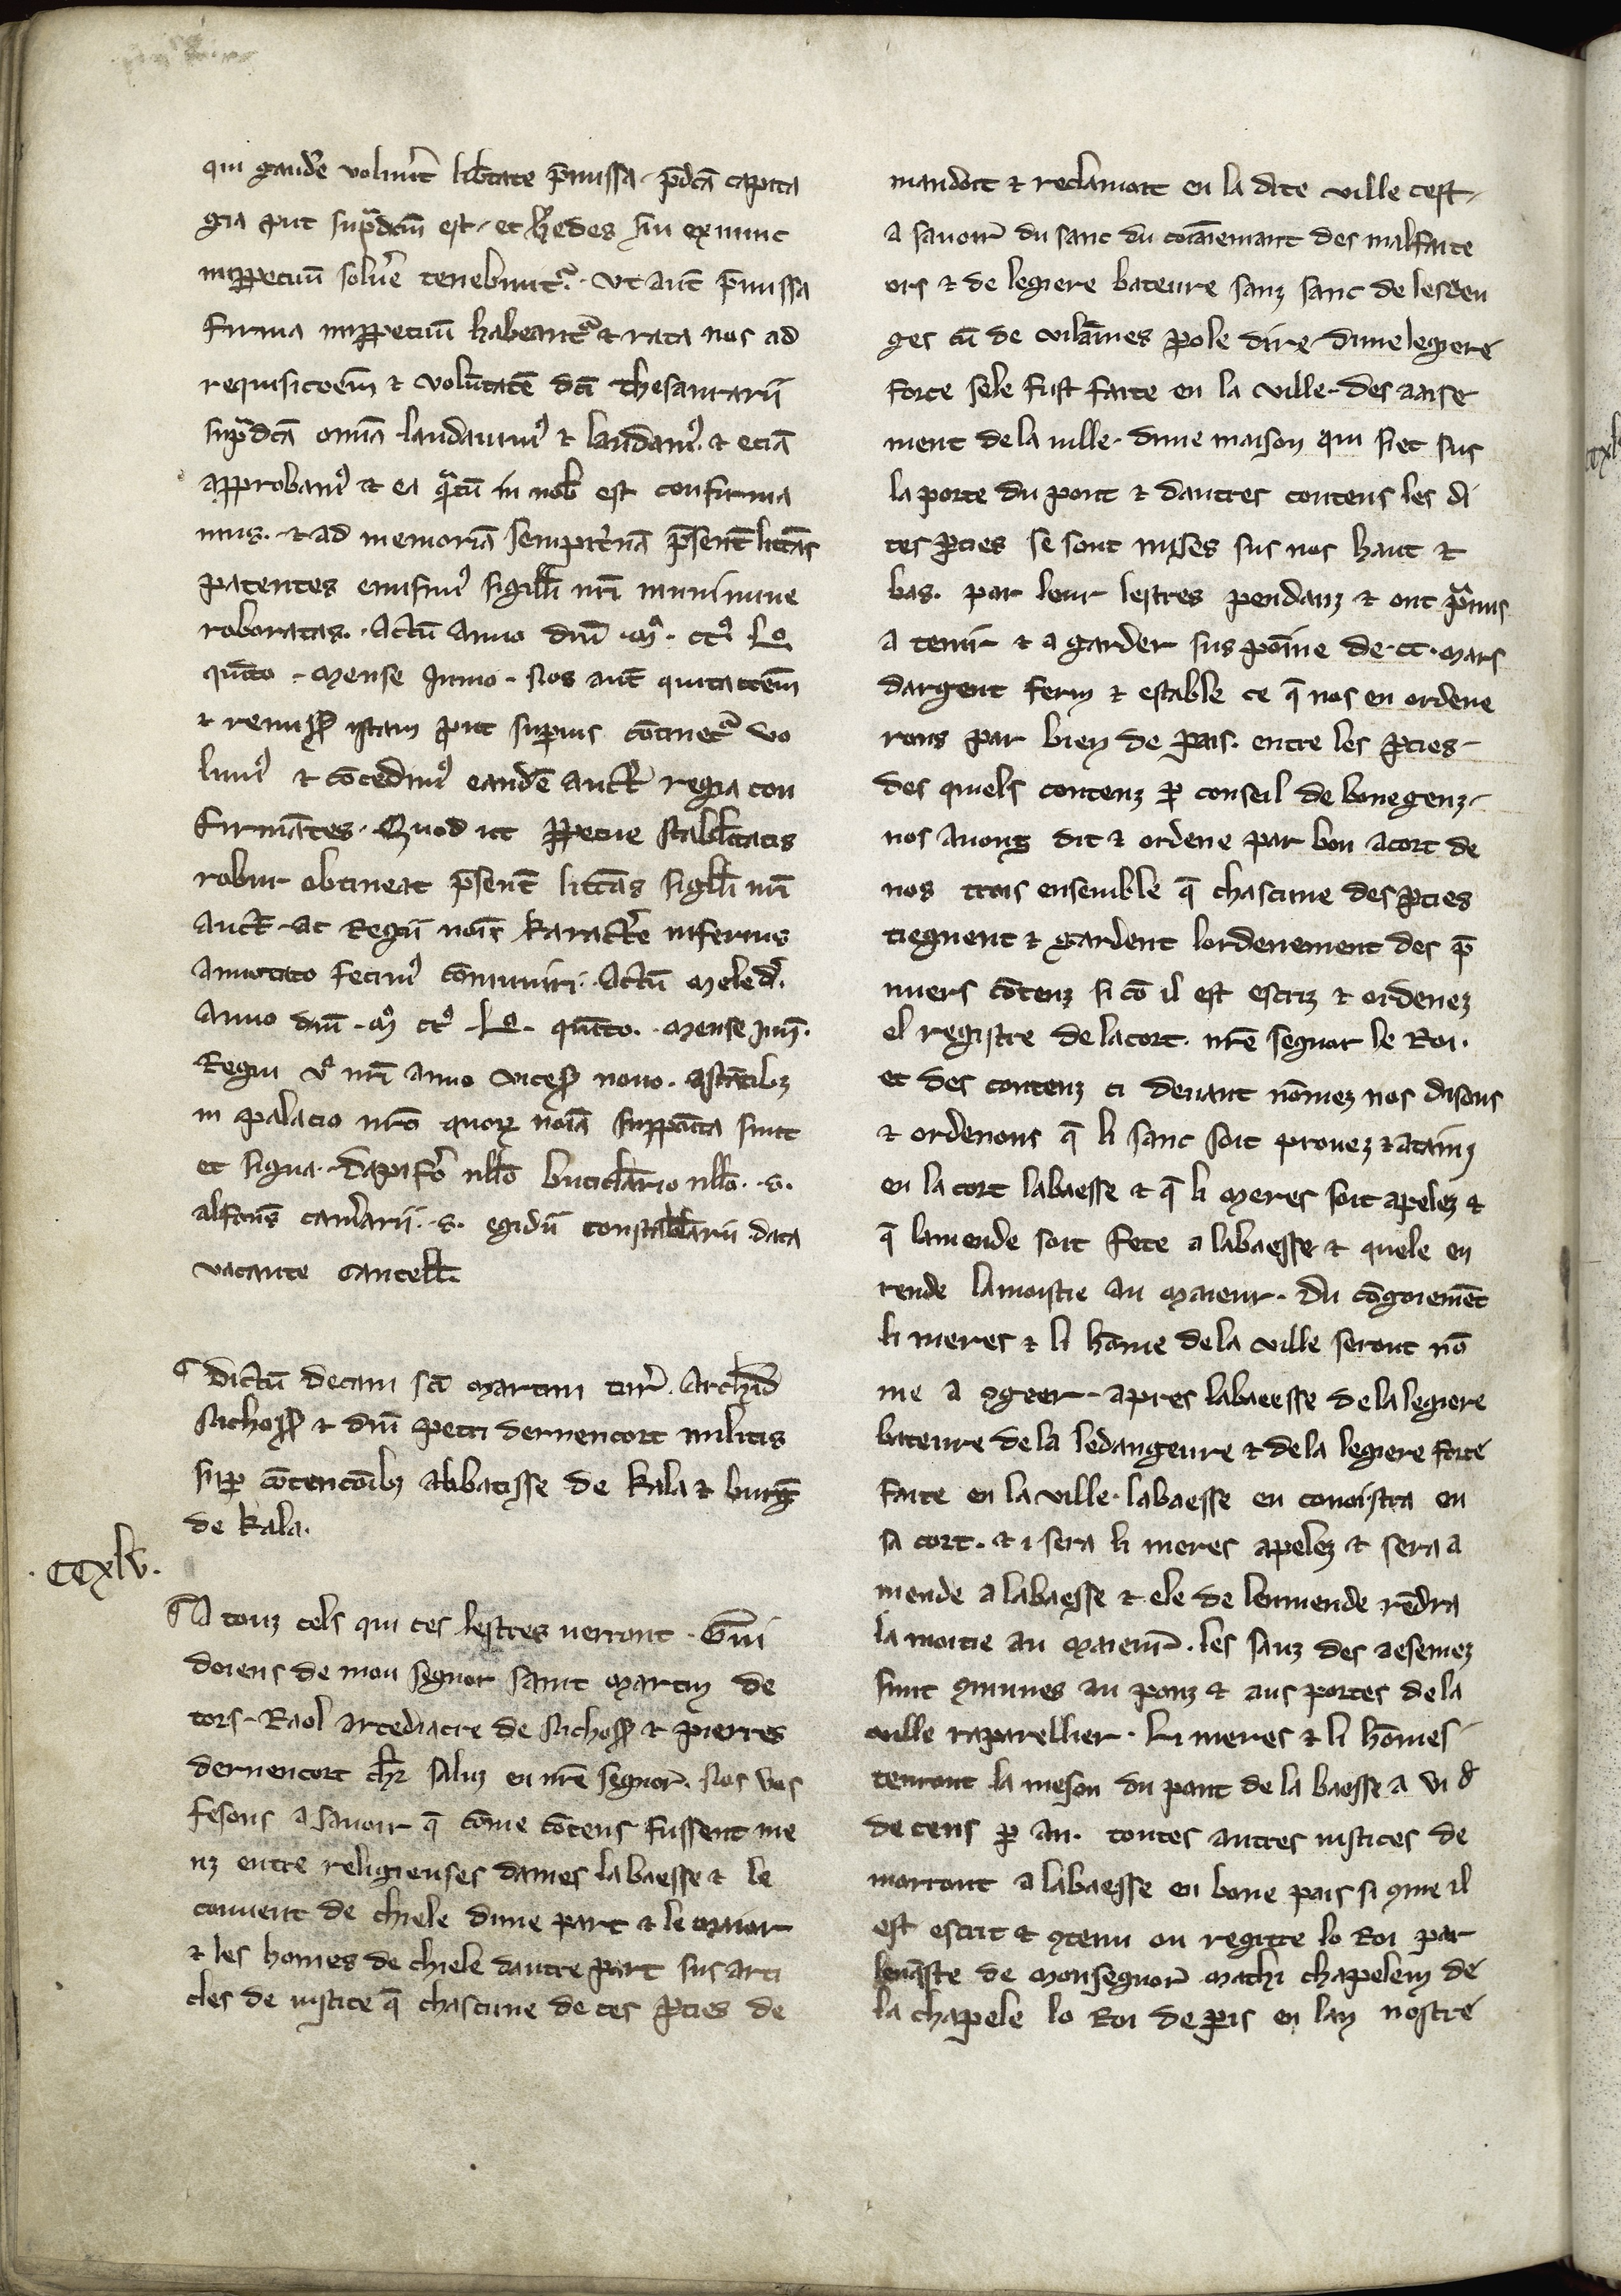 qui gaudẽ voluer̃t lib̃tate p̃missa. p̃dc̃a capita
gia ꝓut sup̃dc̃m est. et h̃edes sui exnunc
inꝑpetuũ solu̾e tenebuntᷣ. Vt aut̃ p̃missa
firma inꝑpetuũ habeantᷣ ⁊ rata nos ad
requisitõem ⁊ volũtatẽ dc̃i thesaurarii
sup̃dc̃a om̃ia laudauimꝰ ⁊ laudamꝰ. ⁊ eciã
approbamꝰ ⁊ ea q̃tũ in nob̃ est confirma
mus. ⁊ ad memoriã sempit̾nã p̃sent̃ litt̃as
patentes emisimꝰ sigilli nr̃i munimine
roboratas. Actũ anno dñi .mͦ. ccͦ. Lͦ
quĩto. Mense Iunio. Nos aut̃ quitacõem
⁊ remiss̃ istam ꝓut suꝑius cõtinetᷣ vo
lumꝰ ⁊ cõcedimꝰ eandẽ auct̃e regia con
firmãtes. Quod ut ꝑpetue stabil̃itatis
robur obtineat p̃sent̃ litt̃as sigill̃i nr̃i
auct̃. ac Regii noĩs karact̾e inferius
annotato fecimꝰ cõmuniri. Actũ Meled̃.
Anno dñi .mͦ ccͦ Lͦ. quĩto. Mense Iuñ.
Regni v̾o nr̃i anno vices̃ nono. astãtibꝫ
in palacio nr̃o quorꝝ noĩa supposita sunt
et signa. dapif̾o null̃o buticl̃ario null̃o. .S.
alfons̃ cam̾arii. .S. egidii constabl̃arii data
vacante Cancell̃.
¶ Dictũ decani sc̃i Martini tur̃. Archid̃
Suession̾ ⁊ dñi petri deruencort militis
suꝑ cõtencõibꝫ abbatisse de kala ⁊ burg̃
de kala.
.CCxlv.
¶ A touz cels qui ces lestres uerront. Gui
doiens de mon segnor saint Martin de
tors. Raol arcediacre de suession̾ ⁊ pierres
deruencort ch̃r saluz en nr̃e segnor. Nos vos
fesons a sauoir q̃ cõme cõtens fussent me
uz entre religieuses dames labaesse ⁊ le
couuent de chiele dune part ⁊ le maior
⁊ les homes de chiele dautre part sus arti
cles de iustice q̃ chascune de ces ꝑties de
mandoit ⁊ reclamoit en la dite ville cest
a sauoir du sanc du conãiemant des malfaite
ors ⁊ de legiere bateure sanz sanc de lesden
ges cũ de vilãines ꝑole dire dune legiere
force sele fust faite en la ville. des aaise
ment de la uille. dune maison qui siet sus
la porte du pont ⁊ dautres contens les di
tes ꝑties se sont mises sus nos haut ⁊
bas. par leur lestres pendanz ⁊ ont p̃mis
a tenir ⁊ a garder sus põine de .cc. Mars
dargent ferm ⁊ estable ce q̃ nos en ordene
rons par bien de pais. entre les ꝑties
des quiels contenz ꝑ conseil de bone genz.
nos auons dit ⁊ ordene par bon acort de
nos trois ensemble q̃ chascune des ꝑties
tiegnent ⁊ gardent lordenement des p̃
miers cõtenz si cõ il est escriz ⁊ ordenez
el registre de la cort. nr̃e segnor le Roi.
et des contenz ci deuant nõmez nos disons
⁊ ordenons q̃ li sanc soit prouez ⁊ atainz
en la cort labaesse ⁊ q̃ li Meres soit apelez ⁊
q̃ lamende soit fete a labaesse ⁊ quele en
rende lamoistie au Maieur. Du cõgoiemẽt
li meres ⁊ li hõme de la ville seront nõ
me a ꝯgeer apres labaeesse de la legiere
bateure de la ledangeure ⁊ de la legiere force
faite en la ville. labaesse en conoistra en
sa cort. ⁊ i sera li meres apelez ⁊ sera a
mende a labaesse ⁊ ele de lemmende rẽdra
la moitie au Maieur̃. les sanz des aesemez
sunt ꝯmunes au ponz ⁊ aus portes de la
ville raparellier. Li meres ⁊ li hõmes
tenront la meson du pont de la baesse a vi d̃
de cens ꝑ an. toutes autres iustices de
morront a labaesse en bone pais si ꝯme il
est escrit ⁊ ꝯtenu ou regitre lo Roi par
lenq̃ste de Monsegnor Mathi chapelein de
la chapele lo Roi de ꝑis en lan nostre